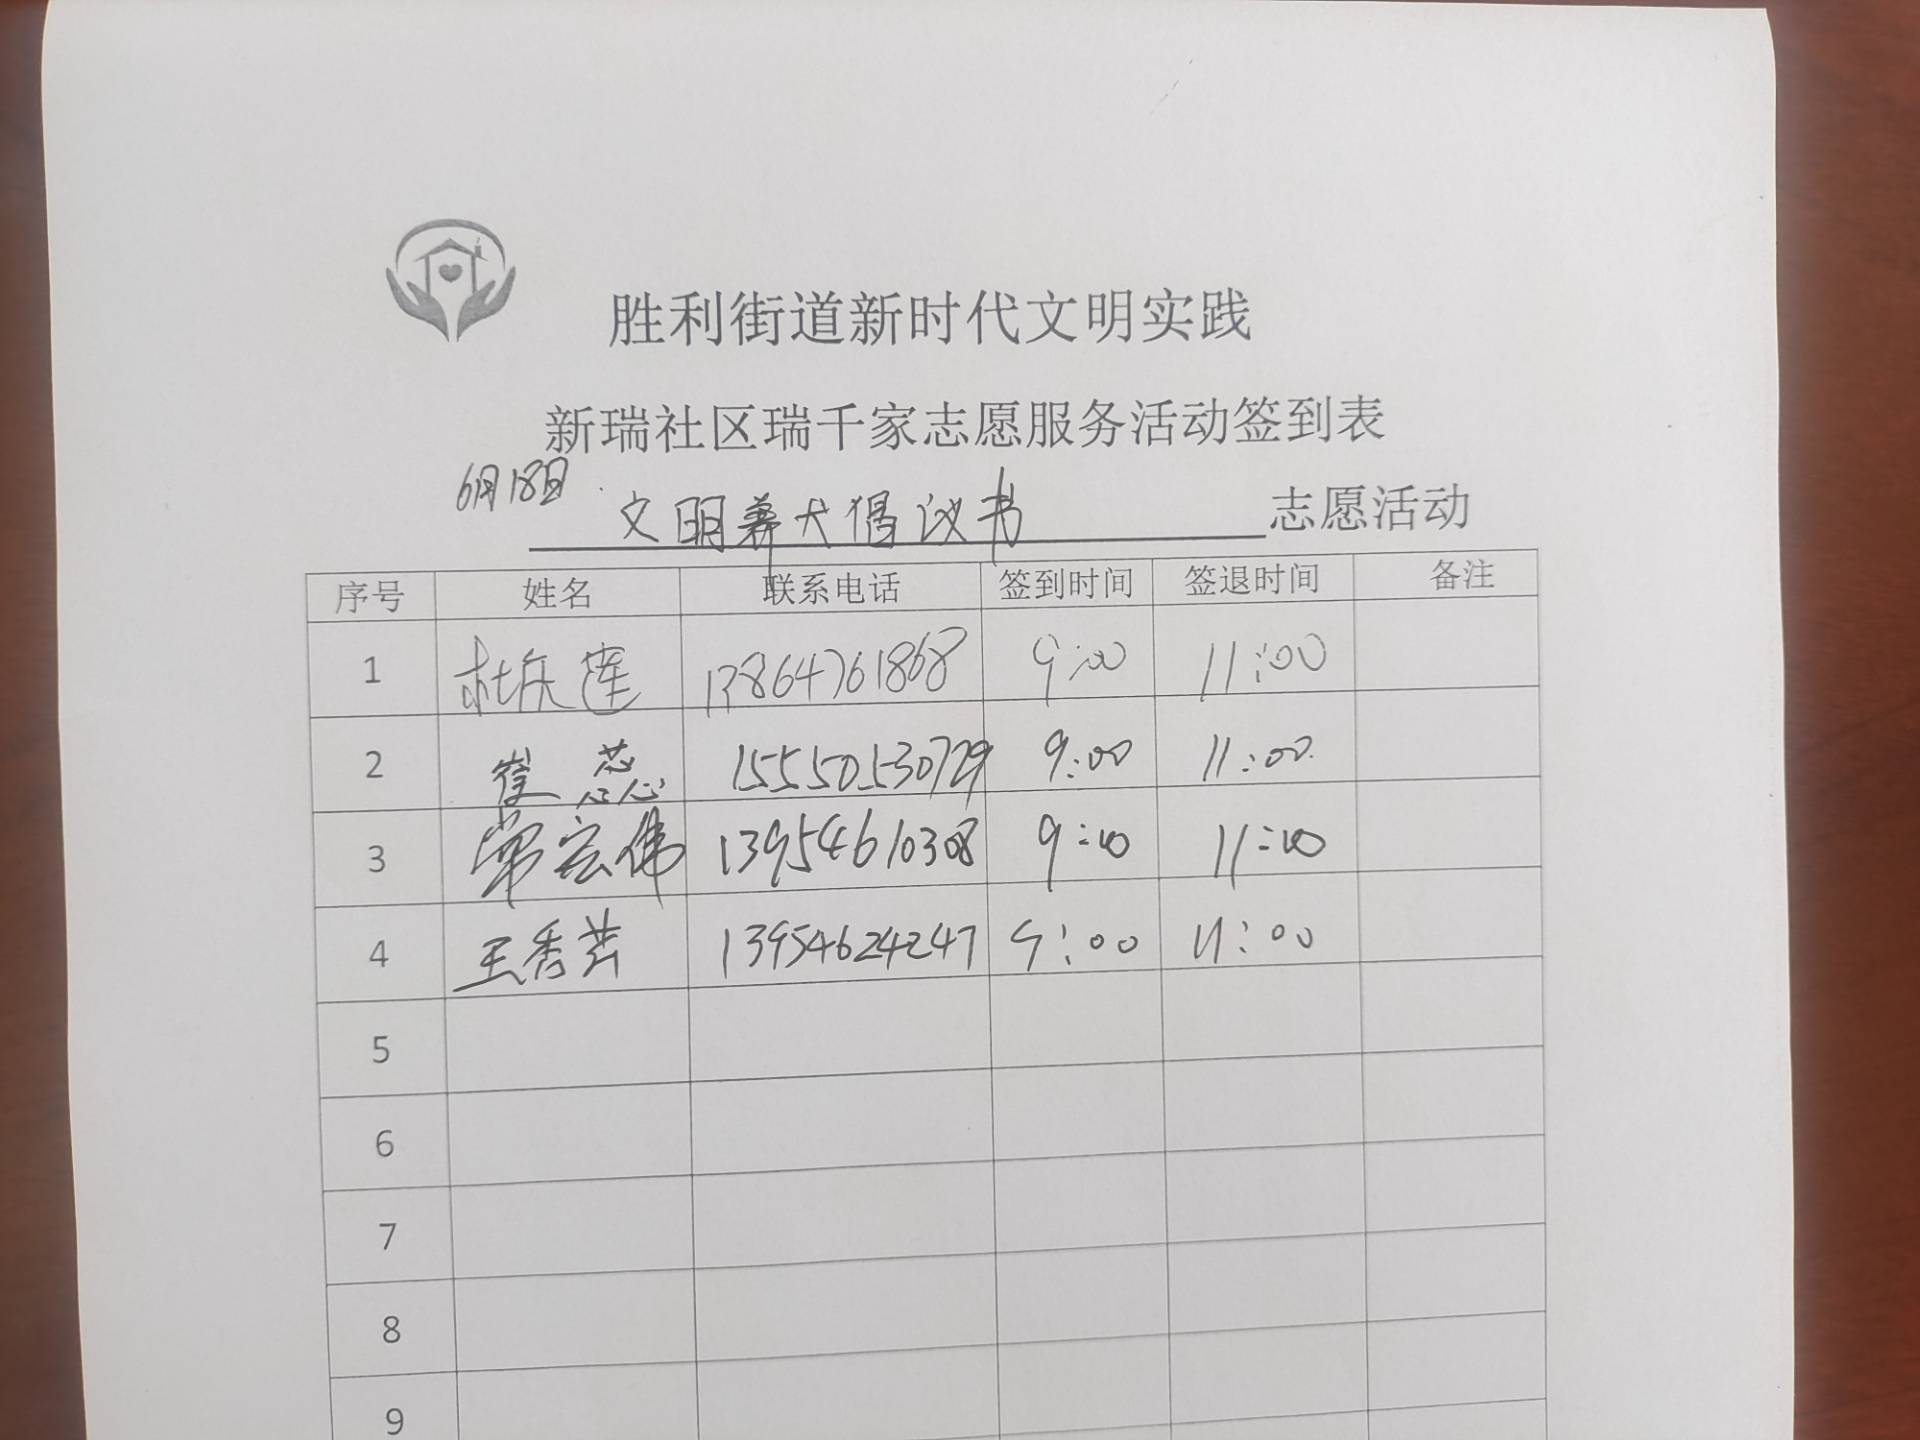 胜利街道新时代文明实践
新瑞社区瑞千家志愿服务活动签到表
6月18日
文明养犬倡议书 志愿活动
序号 姓名 联系电话 签到时间 签退时间 备注
1 杜庆莲 13864761868 9:00 11:00
2 崔蕊 15550530729 9:00 11:00
3 常宏伟 13954610308 9:00 11:00
4 王秀芸 13954624247 9:00 11:00
5
6
7
8
9